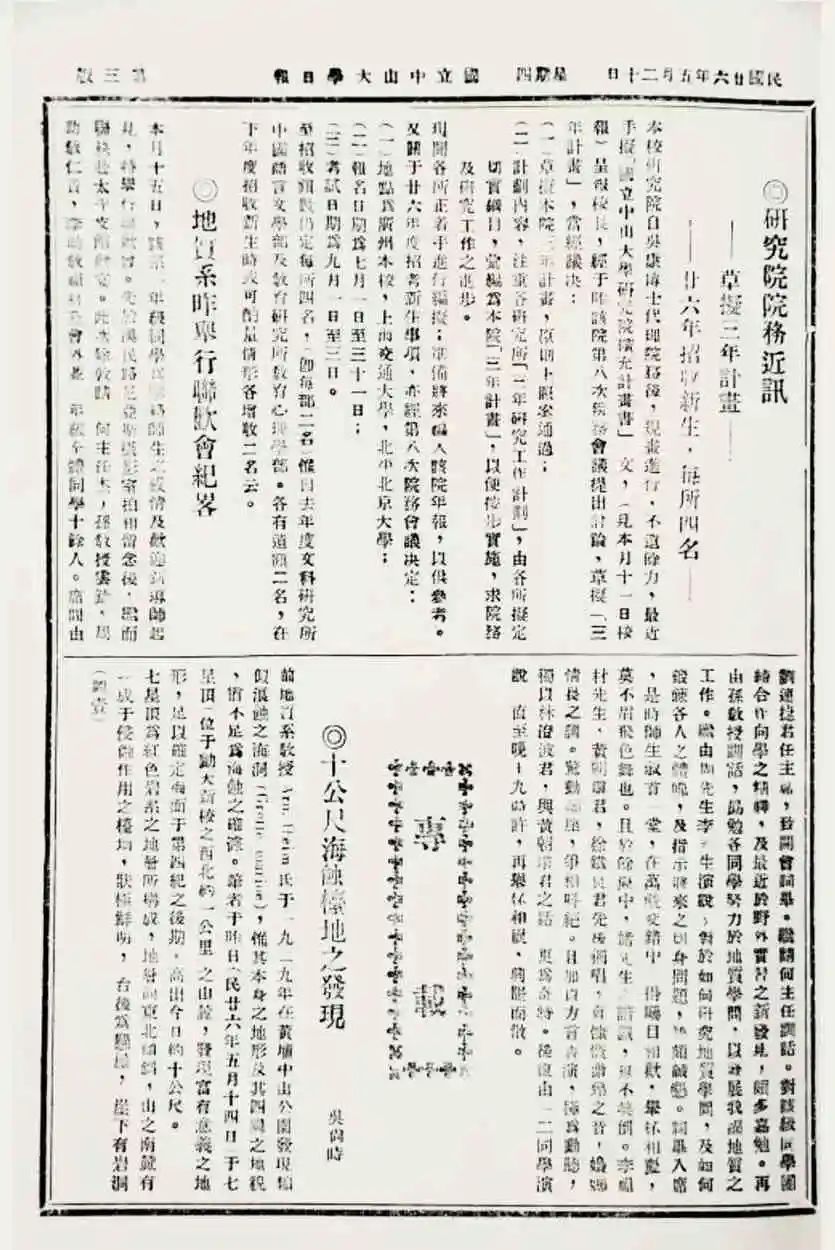 民國廿六年五月二十日　星期四　國立中山大學日報　第三版
◎研究院院務近訊
——草擬三年計畫——
——廿六年招收新生，每所四名——
本校研究院自吳康博士代理院務後，規畫進行，不遺餘力，最近
手擬「國立中山大學研究院擴充計畫書」文，（見本月十一日校
報）呈報校長，經于昨該院第八次院務會議提出討論，草擬「三
年計畫」，當經議決：
（一）草擬本院三年計畫，原則上照案通過；
（二）計劃內容，注重各研究所「三年研究工作計劃」，由各所擬定
切實綱目，彙編為本院「三年計畫」，以便逐步實施，求院務
及研究工作之進步。
現聞各所正着手進行編擬；準備將來編入該院年報，以供參考。
又關于廿六年度招考新生事項，亦經第八次院務會議決定：
（一）地點為廣州本校，上海交通大學，北平北京大學；
（二）報名日期為七月一日至三十一日；
（三）考試日期為九月一日至三日。
至招收額數仍定每所四名，（即每部二名）惟因去年度文科研究所
中國語言文學部及教育研究所教育心理學部。各有遺額二名，在
下年度招收新生時或可酌量情形各增收二名云。
◎地質系昨舉行聯歡會紀畧
本月十五日，該系一年級同學為聯絡師生之感情及歡迎新導師起
見，特舉行聯歡會。先於漢民路艷芳攝影室拍相留念後，繼而
聯袂赴太平支館歡宴。此次除敦請何主任杰，孫教授雲鑄，
助教仁芬，李助教　　　會外並　年級全體同學十餘人。席間由
劉連捷君任主席，致開會詞畢。繼請何主任訓話。對該級同學團
結合作向學之精神，及最近於野外實習之新發現，頗多嘉勉。再
由孫教授訓話，勗勉各同學努力於地質學問，以發展我國地質之
工作。繼由周先生李先生演說，對於如何研究地質學問，及如何
鍛鍊各人之體魄，及指示將來之切身問題，　　　詞畢入席
，是時師生敍首一堂，在萬籟交錯中，　　日相歡，舉杯相覷，
莫不眉飛色舞也。且於餘興中，諸先生之諧謔，莫不絕倒。李
材先生，黃明　君，徐鐵良君先後獨唱，　　　　之音，
情長之調。驚動四座，爭相呼絕。且加以方言表演，極為動聽，
獨以林澄波君，與黃朝琪君之話，更為奇特。後復由一二同學演
說，直至晚十九時許，再舉杯相祝，興盡而散。
專載
◎十公尺海蝕臺地之發現
吳尚時
前地質系教授 Arn. Heim 氏于一九一九年在黃埔中山公園發現類
似浪蝕之海洞（Grotte marine），惟其本身之地形及其四周之地貌
，皆不足為海蝕之確證。筆者于昨日（民廿六年五月十四日）于七
星頂（位于勷大新校之西北約一公里）之山麓，發現富有意義之地
形，足以確定海面于第四紀之後期，高出今日約十公尺。
七星頂為紅色岩系之地層所構成，地層向東北傾斜，山之南麓有
一成于侵蝕作用之檯地，狀極鮮明，台後為懸崖，崖下有岩洞
（圖壹）